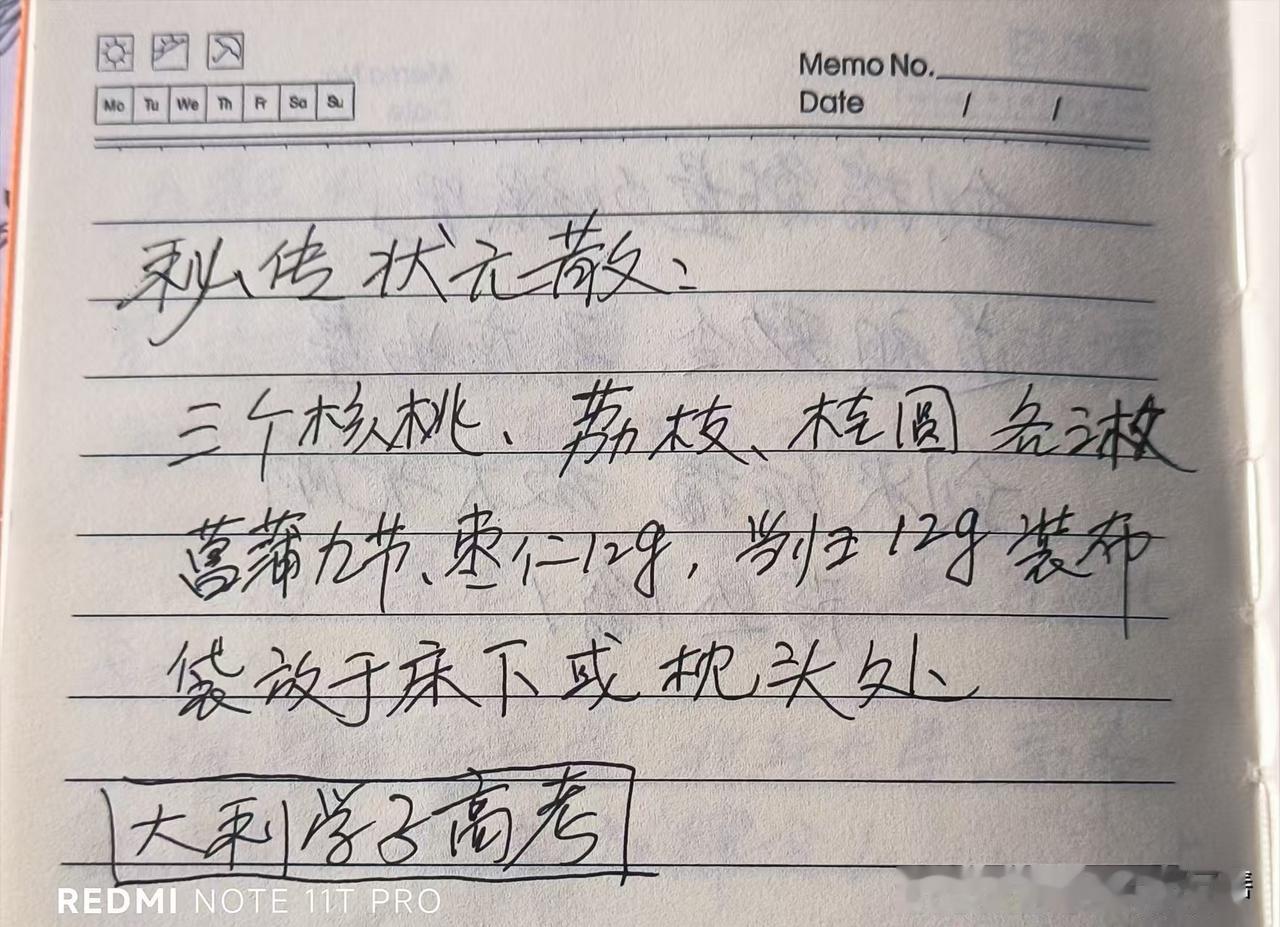 Mo Tu We Th Fr Sa Su
Memo No.
Date / /
秘传状元散：
三个核桃、荔枝、桂圆各三枚
菖蒲九节、枣仁12g，当归12g装布
袋放于床下或枕头处
大利学子高考
REDMI NOTE 11T PRO